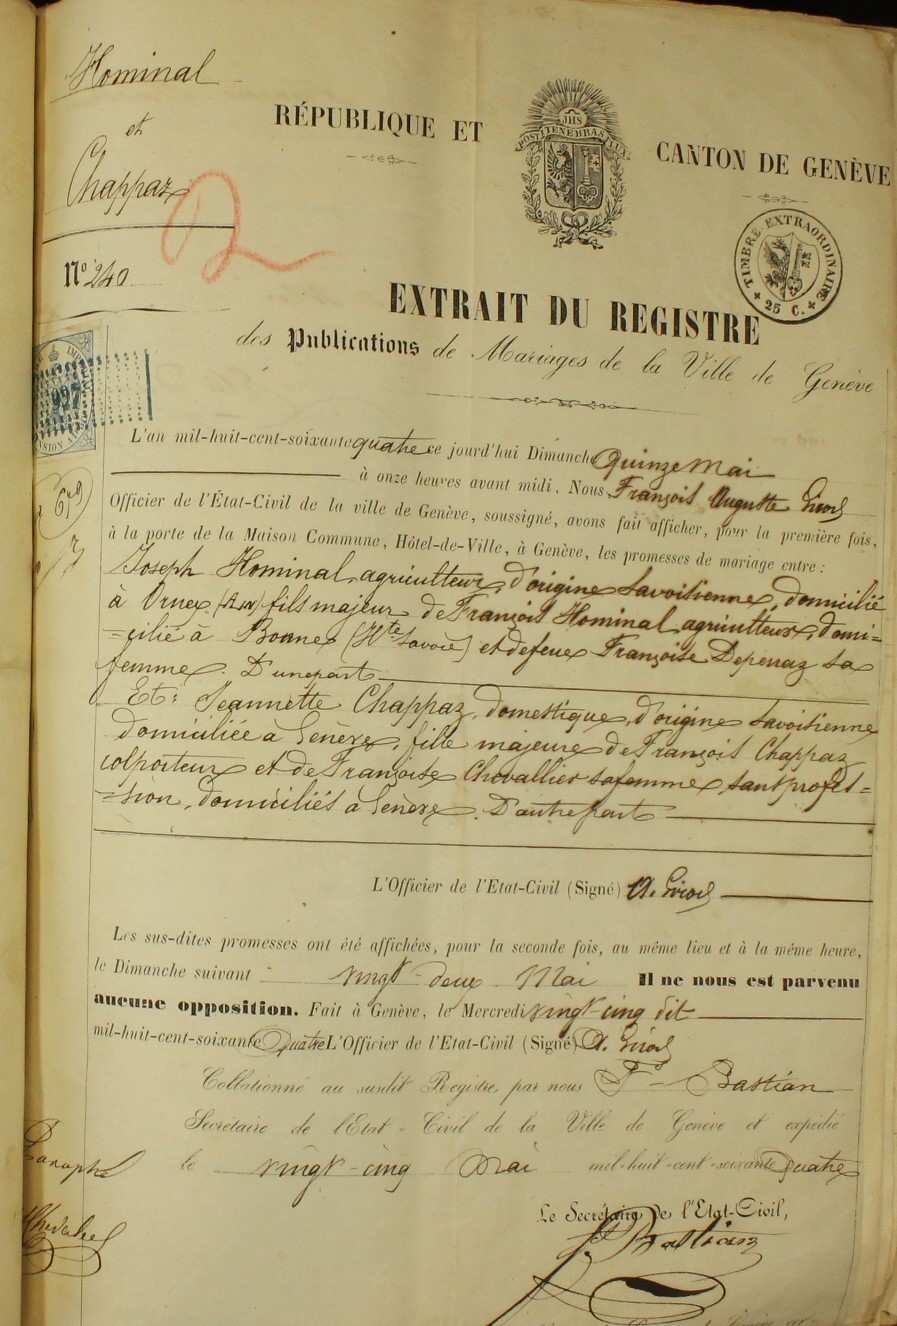 Hominal
et
Chappaz
2
N° 240
RÉPUBLIQUE ET
CANTON DE GENÈVE
JHS
POST TENEBRAS LUX
TIMBRE EXTRAORDINAIRE
25 C.
EXTRAIT DU REGISTRE
des Publications de Mariages de la Ville de Genève
L'an mil-huit-cent-soixante quatre ce jourd'hui Dimanche Quinze Mai
à onze heures avant midi, Nous, François Auguste Girod
Officier de l'État-Civil de la ville de Genève, soussigné, avons fait afficher, pour la première fois,
à la porte de la Maison Commune, Hôtel-de-Ville, à Genève, les promesses de mariage entre :
Joseph Hominal, agriculteur, d'origine Savoisienne, domicilié
à Ornex, (Ain) fils majeur de François Hominal agriculteur, domi-
=cilié à Bonne (Hte Savoie) et de feue Françoise Depenaz sa
femme. D'une part
Et: Jeannette Chappaz, domestique, d'origine Savoisienne
domiciliée à Genève, fille majeure de François Chappaz
colporteur et de Françoise Chevallier sa femme, sans profes-
=sion, domiciliés à Genève. D'autre part
L'Officier de l'Etat-Civil (Signé) A. Girod
Les sus-dites promesses ont été affichées, pour la seconde fois, au même lieu et à la même heure,
le Dimanche suivant vingt-deux Mai Il ne nous est parvenu
aucune opposition. Fait à Genève, le Mercredi vingt-cinq dit
mil-huit-cent-soixante Quatre L'Officier de l'Etat-Civil (Signé) A. Girod
Collationné au susdit Registre, par nous Fs Bastian
Secrétaire de l'Etat-Civil de la Ville de Genève et expédié
le vingt-cinq Mai mil-huit-cent-soixante Quatre
Paraphé
Le Secrétaire de l'Etat-Civil,
Fs Bastian